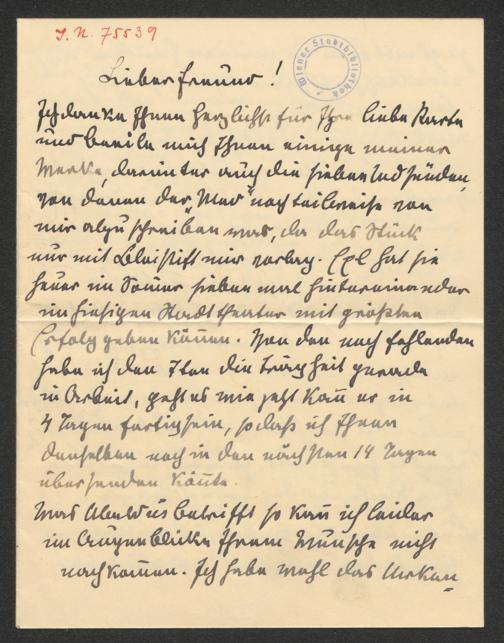 J. N. 75539
Wiener Stadtbibliothek
Lieber Freund!
Ich danke Ihnen herzlichst für Ihre liebe Karte
und beeile mich Ihnen einige meiner
Werke, darunter auch die sieben Todsünden,
von denen der "Neid" noch teilweise von
mir abzuschreiben war, da das Stück
nur mit Bleistift mir vorlag. Exl hat sie
heuer im Sommer sieben mal hintereinander
im hiesigen Stadttheater mit größten
Erfolg geben können. Von den noch fehlenden
habe ich den 7ten die Trägheit gerade
in Arbeit, geht es wie jetzt kann er in
4 Tagen fertig sein, sodaß ich Ihnen
denselben noch in den nächsten 14 Tagen
übersenden könnte.
Was betrifft so kann ich leider
im Augenblicke Ihrem Wunsche nicht
nachkommen. Ich habe wohl das